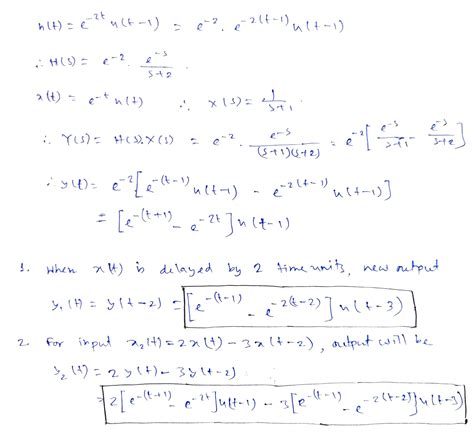 h(t) = e^{-2t} u(t-1) = e^{-2}. e^{-2(t-1)} u(t-1)
∴ H(s) = e^{-2}. e^{-s}/(s+2)
x(t) = e^{-t} u(t) ∴ X(s) = 1/(s+1)
∴ Y(s) = H(s).X(s) = e^{-2}. e^{-s}/((s+1)(s+2)) = e^{-2}[e^{-s}/(s+1) - e^{-s}/(s+2)]
∴ y(t) = e^{-2}[e^{-(t-1)} u(t-1) - e^{-2(t-1)} u(t-1)]
= [e^{-(t+1)} - e^{-2t}] u(t-1)
1. When x(t) is delayed by 2 time units, new output
y₁(t) = y(t-2) = [e^{-(t-1)} - e^{-2(t-2)}] u(t-3)
2. For input x₂(t) = 2x(t) - 3x(t-2), output will be
y₂(t) = 2y(t) - 3y(t-2)
= 2[e^{-(t+1)} - e^{-2t}] u(t-1) - 3[e^{-(t-1)} - e^{-2(t-2)}] u(t-3)